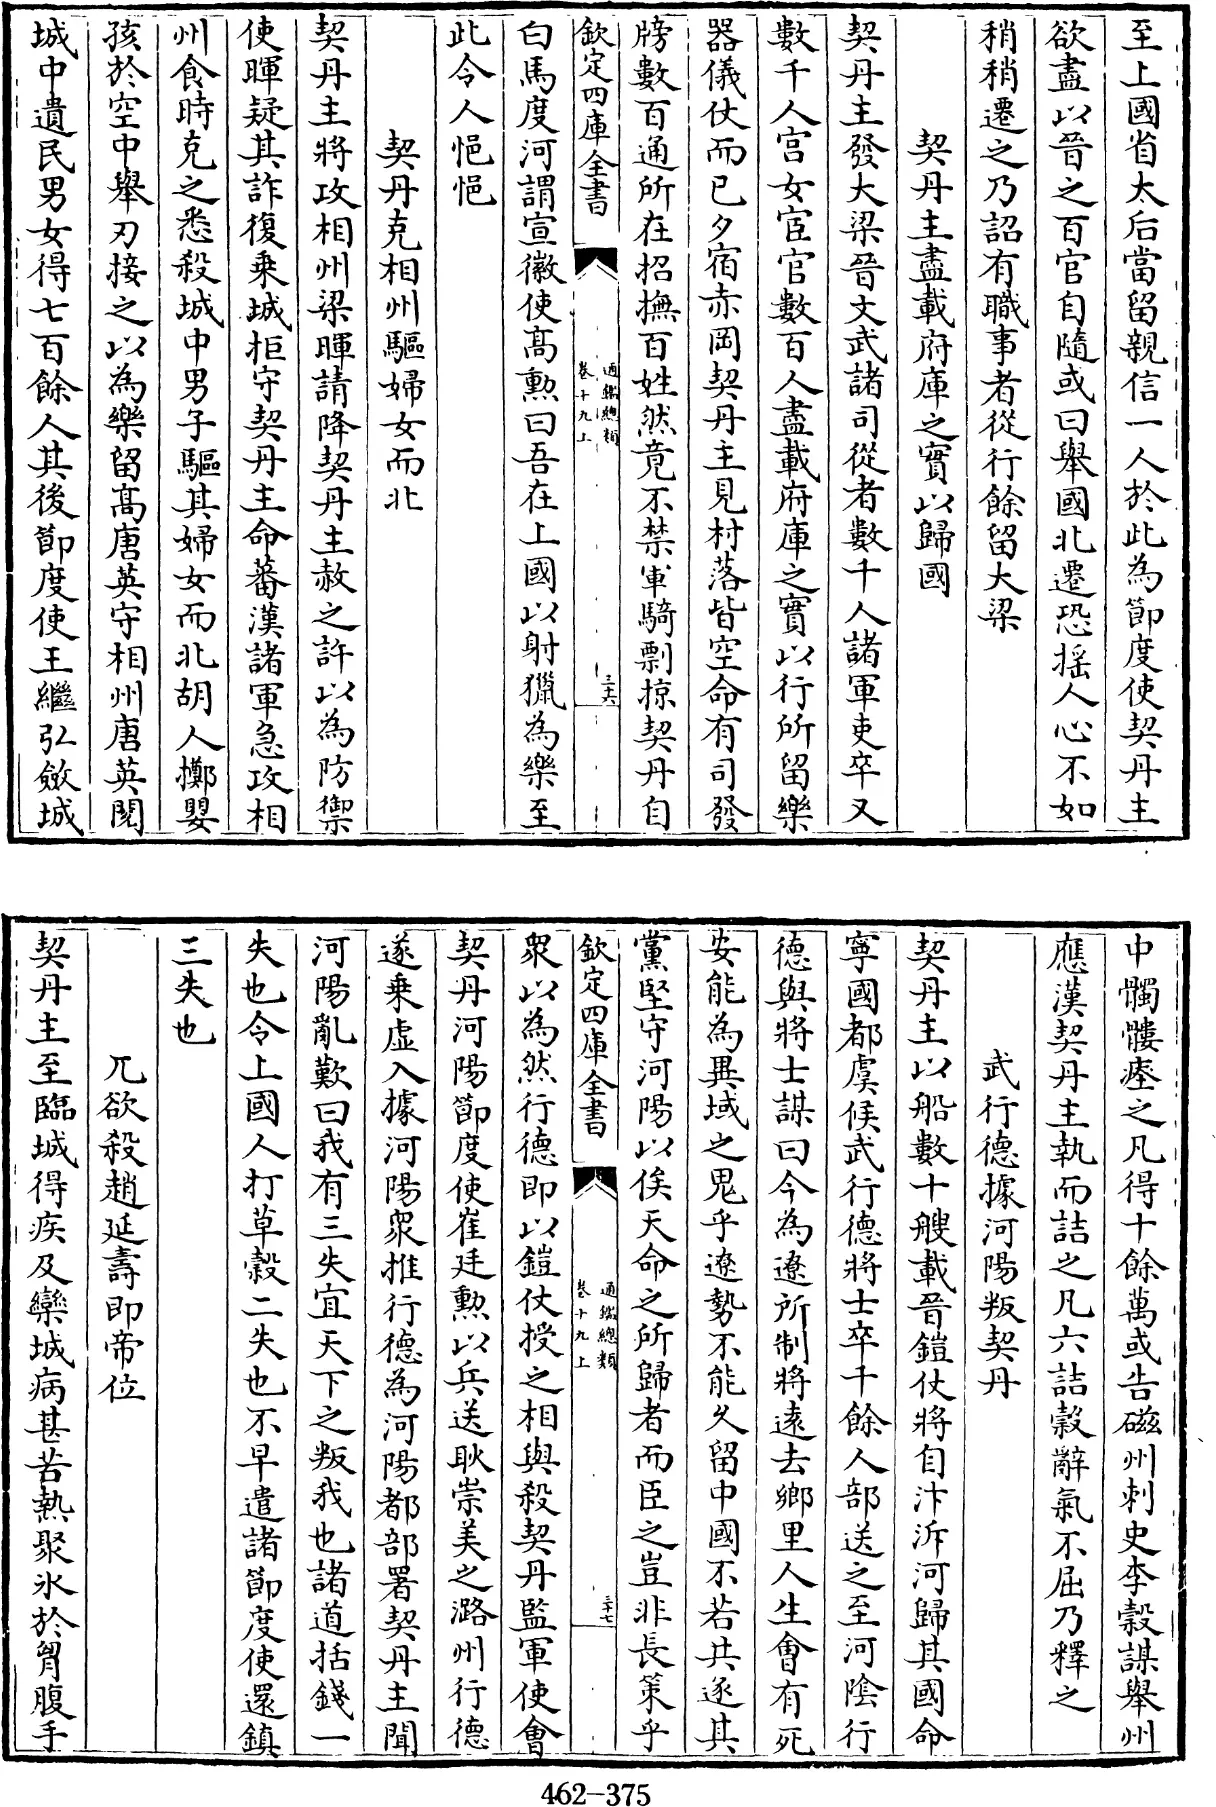 至上國省太后當留親信一人於此為節度使契丹主
欲盡以晉之百官自隨或曰舉國北遷恐揺人心不如
稍稍遷之乃詔有職事者從行餘留大梁
契丹主盡載府庫之實以歸國
契丹主發大梁晉文武諸司從者數千人諸軍吏卒又
數千人宫女宦官數百人盡載府庫之實以行所留樂
器儀仗而已夕宿赤岡契丹主見村落皆空命有司發
牓數百通所在招撫百姓然竟不禁軍騎剽掠契丹自
欽定四庫全書
通鑑總類
卷十九上
三十六
白馬度河謂宣徽使高勲曰吾在上國以射獵為樂至
此令人悒悒
契丹克相州驅婦女而北
契丹主將攻相州梁暉請降契丹主赦之許以為防禦
使暉疑其詐復乗城拒守契丹主命蕃漢諸軍急攻相
州食時克之悉殺城中男子驅其婦女而北胡人擲嬰
孩於空中舉刃接之以為樂留髙唐英守相州唐英閱
城中遺民男女得七百餘人其後節度使王繼弘斂城
中髑髏瘞之凡得十餘萬或告磁州刺史李穀謀舉州
應漢契丹主執而詰之凡六詰穀辭氣不屈乃釋之
武行德據河陽叛契丹
契丹主以船數十艘載晉鎧仗將自汴泝河歸其國命
寧國都虞候武行德將士卒千餘人部送之至河陰行
德與將士謀曰今為遼所制將逺去鄉里人生會有死
安能為異域之鬼乎遼勢不能久留中國不若共逐其
黨堅守河陽以俟天命之所歸者而臣之豈非長策乎
欽定四庫全書
通鑑總類
卷十九上
三十七
衆以為然行德即以鎧仗授之相與殺契丹監軍使會
契丹河陽節度使崔廷勲以兵送耿崇美之潞州行德
遂乗虛入據河陽衆推行德為河陽都部署契丹主聞
河陽亂歎曰我有三失宜天下之叛我也諸道括錢一
失也令上國人打草穀二失也不早遣諸節度使還鎮
三失也
兀欲殺趙延壽即帝位
契丹主至臨城得疾及欒城病甚苦熱聚氷於胷腹手
462-375